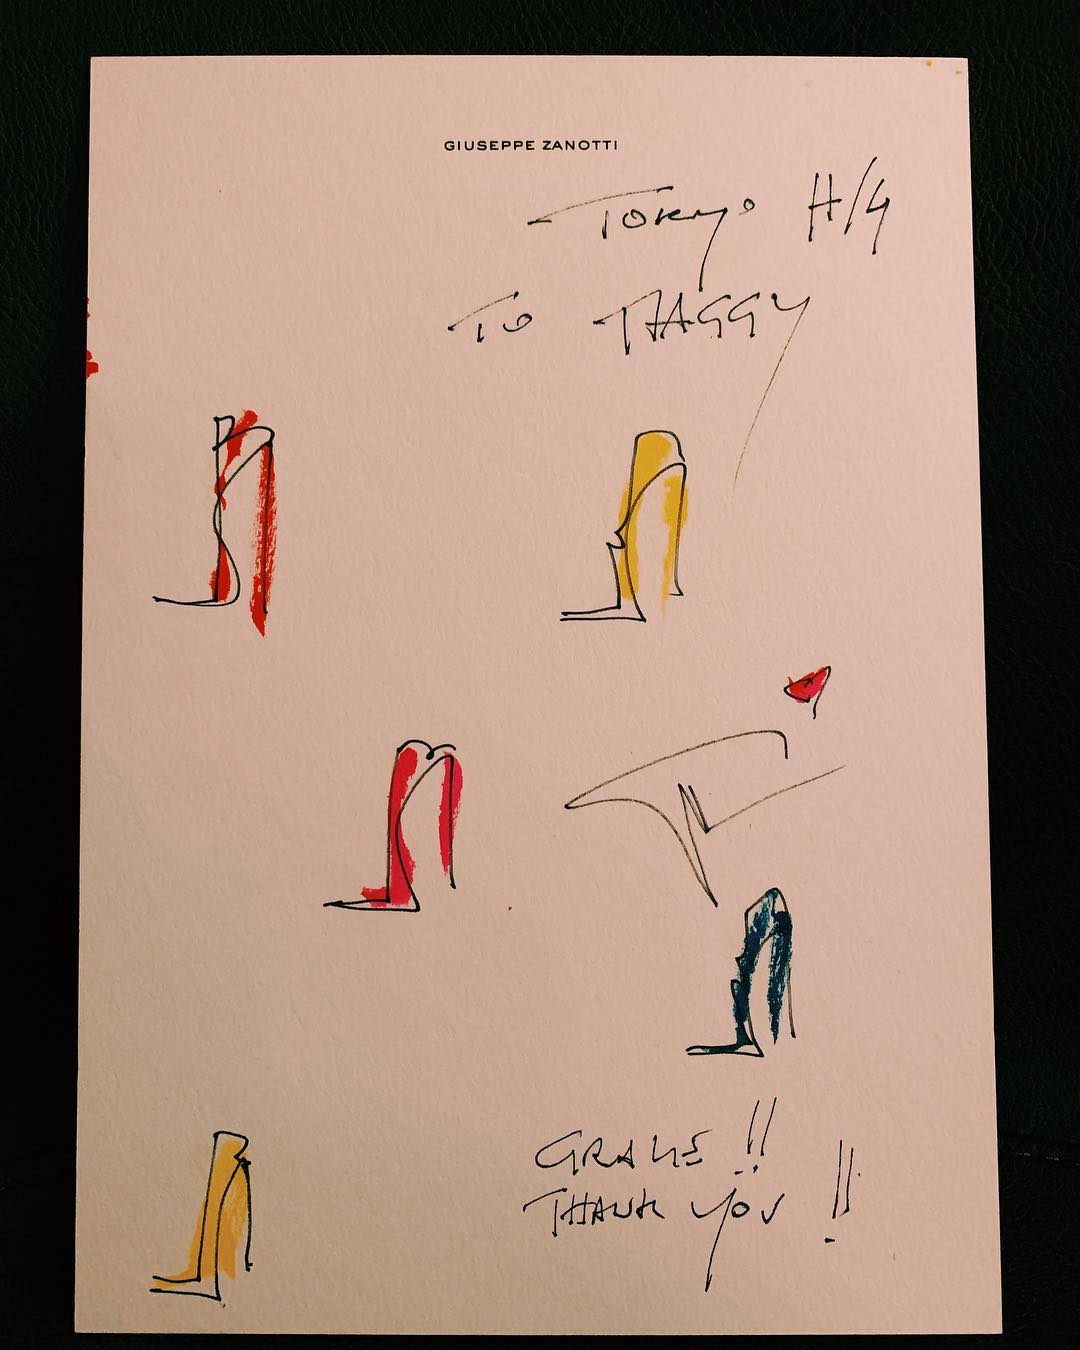 GIUSEPPE ZANOTTI
TOKYO H/4
TO TAGGY
GRAZIE !!
THANK YOU !!